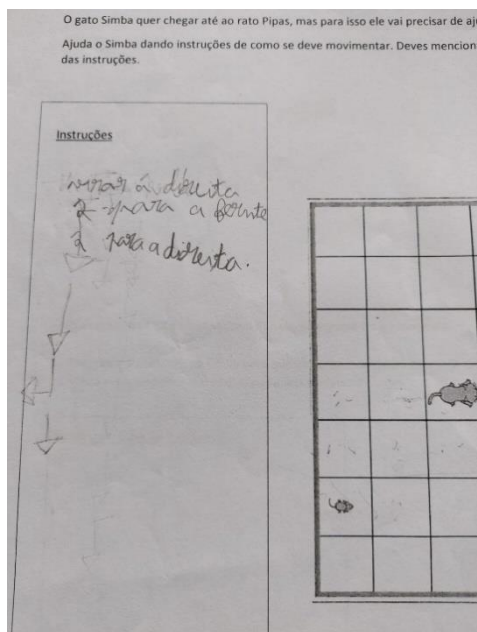 O gato Simba quer chegar até ao rato Pipas, mas para isso ele vai precisar de aj
Ajuda o Simba dando instruções de como se deve movimentar. Deves mencion
das instruções.
Instruções
virar á direita
2 para a frente
2 para a direita.